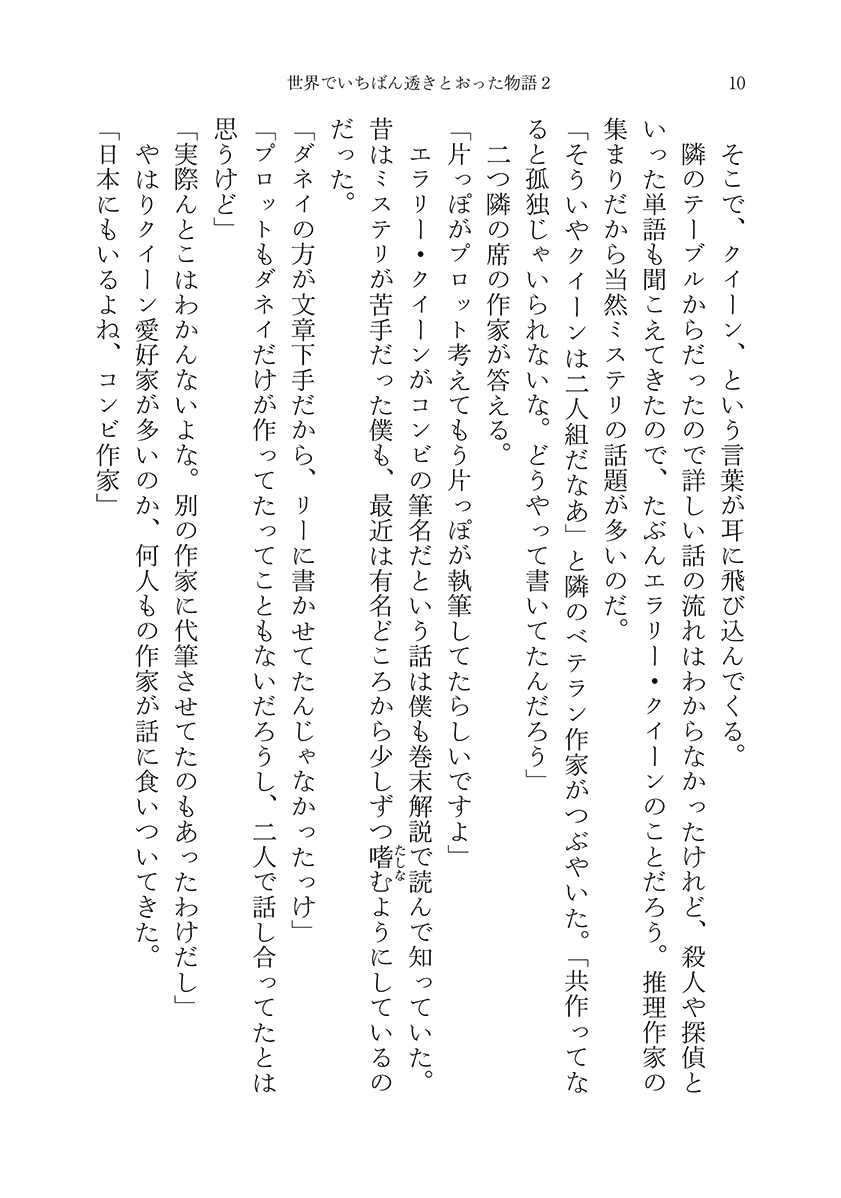 世界でいちばん透きとおった物語２
10
　そこで、クイーン、という言葉が耳に飛び込んでくる。
　隣のテーブルからだったので詳しい話の流れはわからなかったけれど、殺人や探偵と
いった単語も聞こえてきたので、たぶんエラリー・クイーンのことだろう。推理作家の
集まりだから当然ミステリの話題が多いのだ。
「そういやクイーンは二人組だなあ」と隣のベテラン作家がつぶやいた。「共作ってな
ると孤独じゃいられないな。どうやって書いてたんだろう」
　二つ隣の席の作家が答える。
「片っぽがプロット考えてもう片っぽが執筆してたらしいですよ」
　エラリー・クイーンがコンビの筆名だという話は僕も巻末解説で読んで知っていた。
昔はミステリが苦手だった僕も、最近は有名どころから少しずつ嗜むようにしているの
たしな
だった。
「ダネイの方が文章下手だから、リーに書かせてたんじゃなかったっけ」
「プロットもダネイだけが作ってたってこともないだろうし、二人で話し合ってたとは
思うけど」
「実際んとこはわかんないよな。別の作家に代筆させてたのもあったわけだし」
　やはりクイーン愛好家が多いのか、何人もの作家が話に食いついてきた。
「日本にもいるよね、コンビ作家」